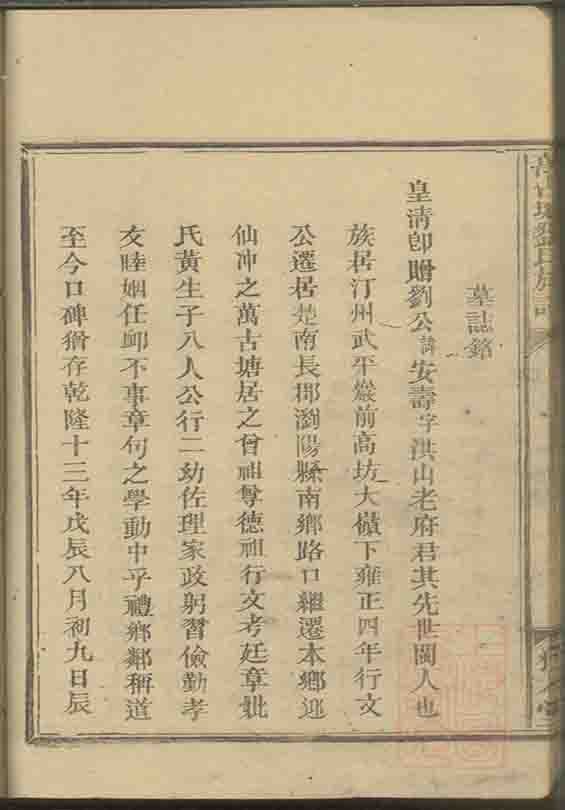 墓誌銘
皇清卽贈劉公諱安壽字洪山老府君其先世閩人也
族居汀州武平巖前高坊大嶺下雍正四年行文
公遷居楚南長郡瀏陽縣南鄉路口繼遷本鄉迎
仙冲之萬古塘居之曾祖尊德祖行文考廷章妣
氏黃生子八人公行二幼佐理家政躬習儉勤孝
友睦婣任卹不事章句之學動中乎禮鄉鄰稱道
至今口碑猶存乾隆十三年戊辰八月初九日辰